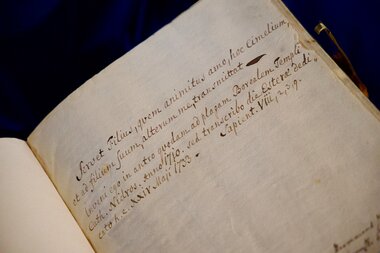 Servet Filius, quem animitus amo, hoc Cimelium,
et ad filium suum, alterum me, transmittat
Inveni ego in antro quodam ad plagam Borealem Templi
Cath. Nidros. Anno 1710. sed transcribo die Esteræ dedi„
cato h. e. XXIV Maji 1733.
Sapient. VIII, 2, 3, 9.